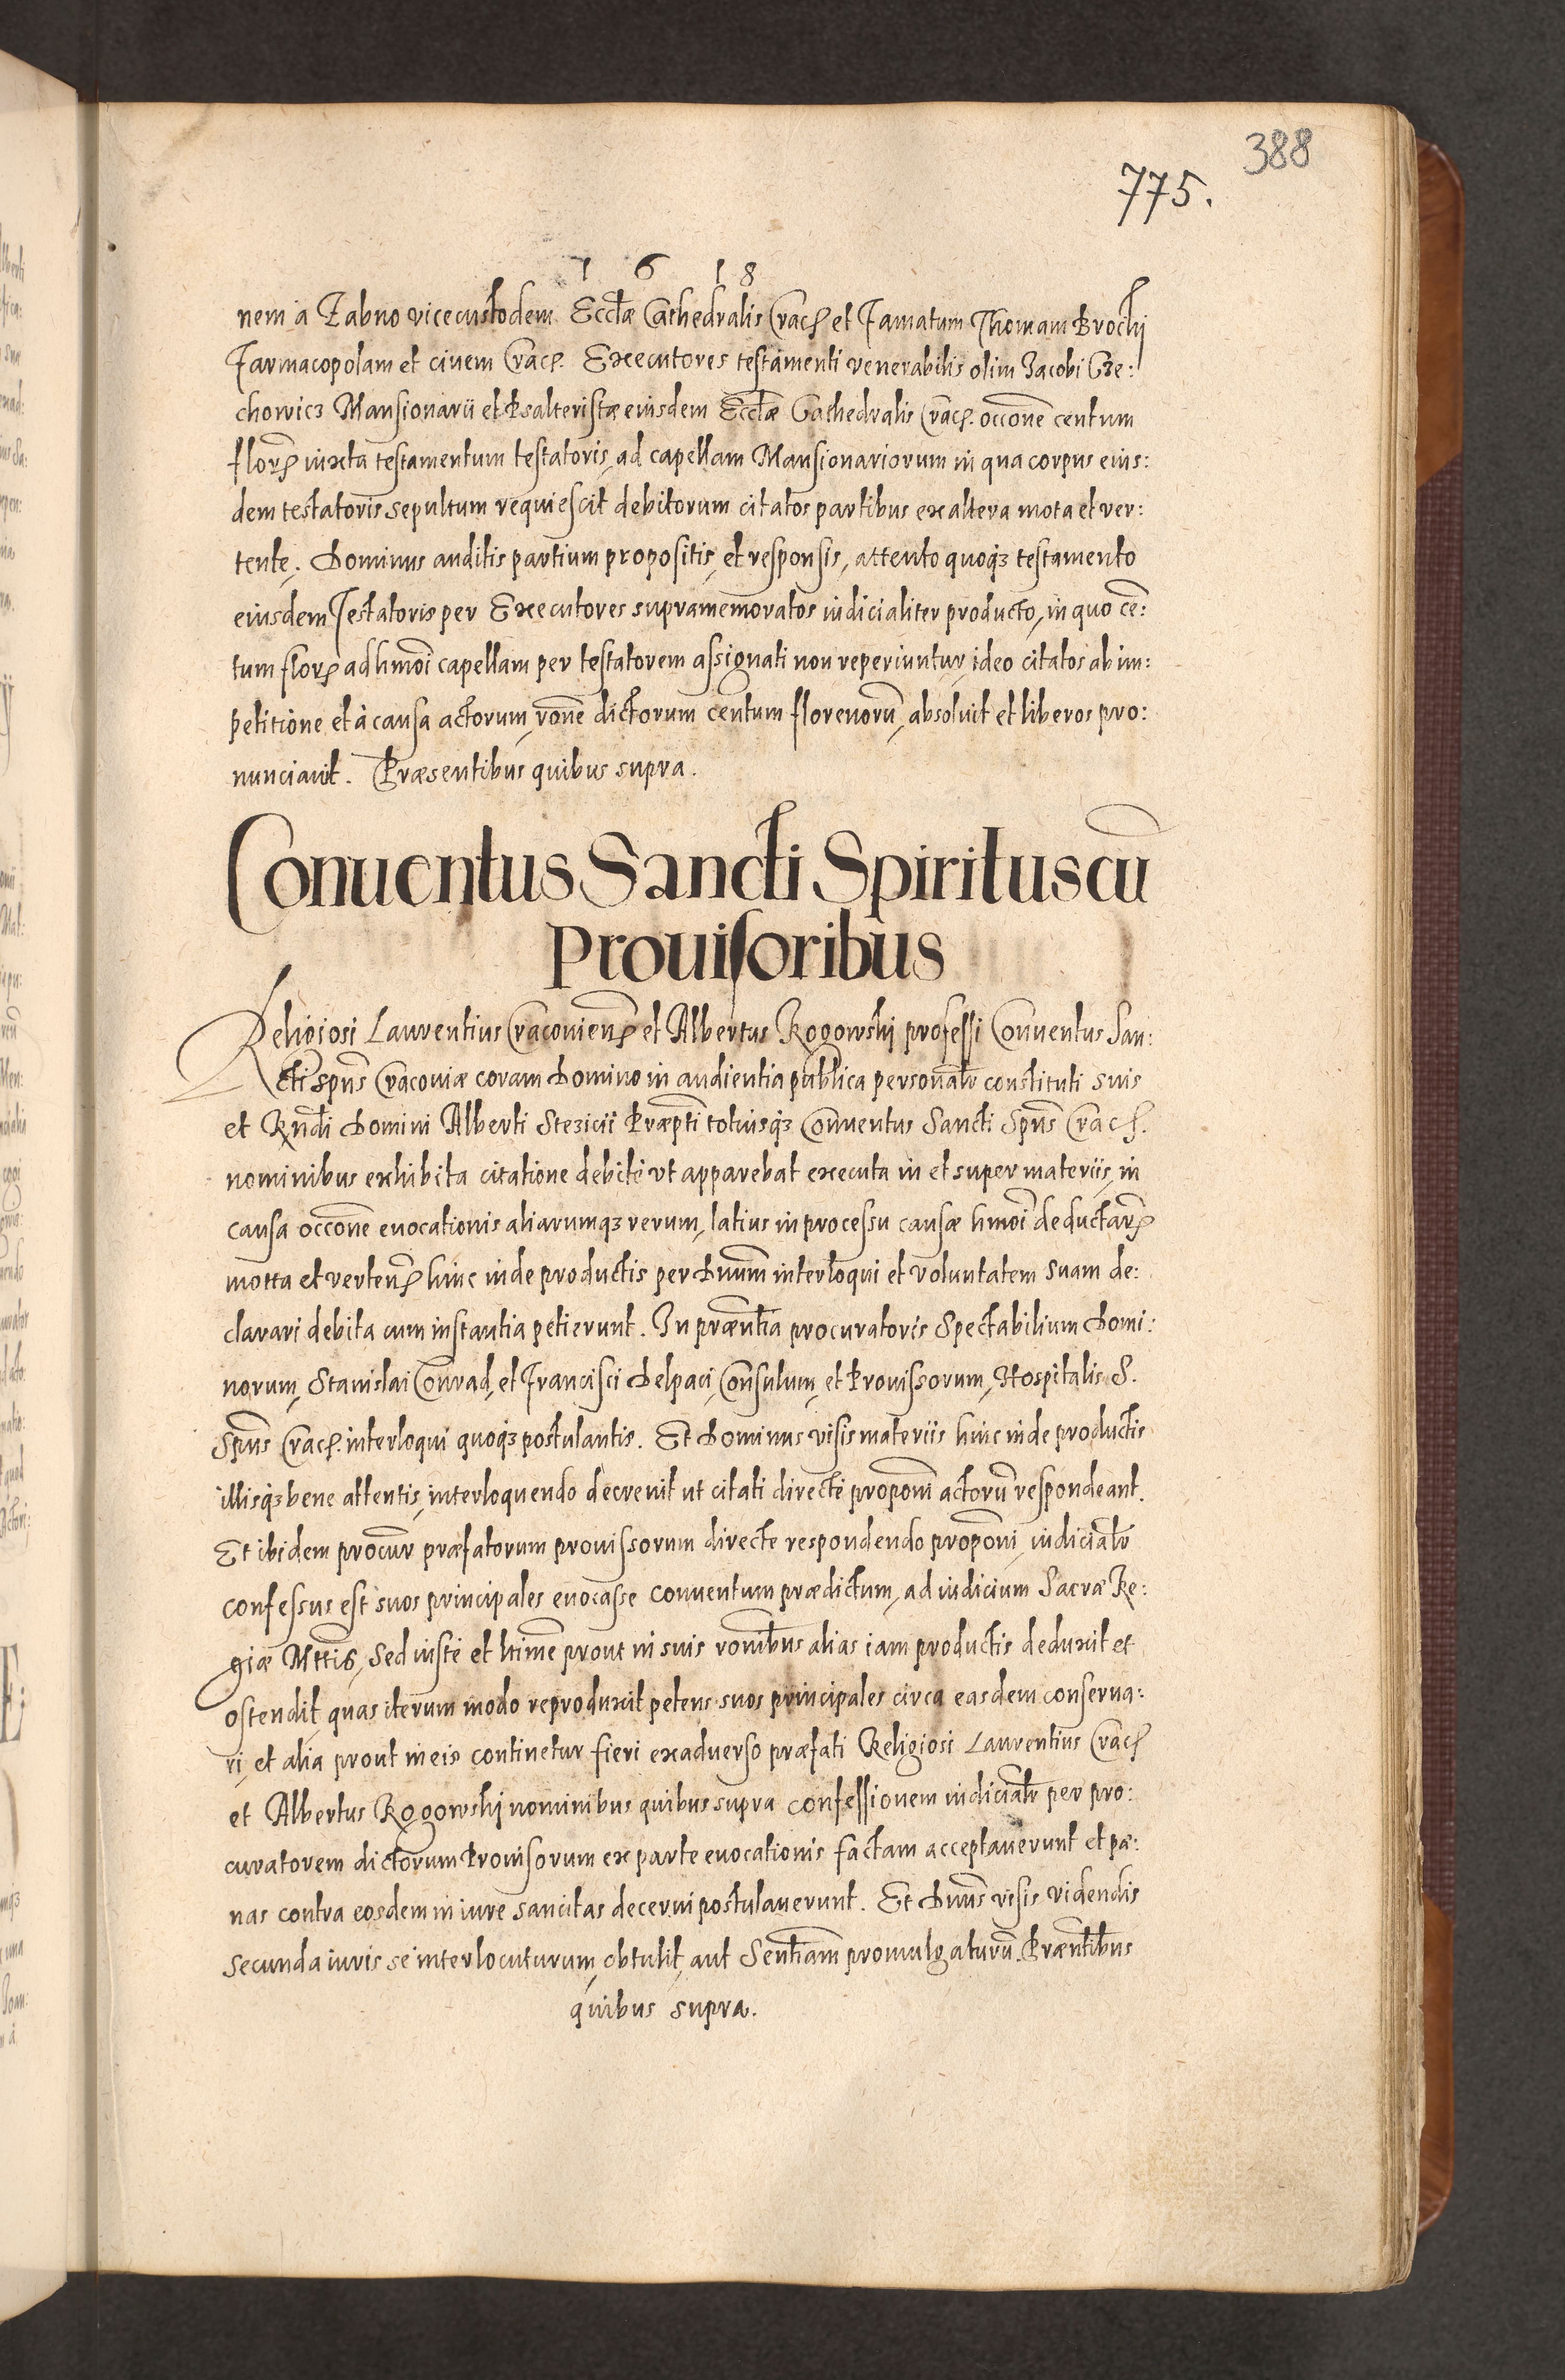 388
775.
1 6 1 8
nem a Zabno vicecustodem Eccłæ Cathedralis Crac. et Famatum Thomam Brochi
Farmacopolam et civem Crac. Executores testamenti venerabilis olim Jacobi Cze:
chowicz Mansionarii et Psalteristæ eiusdem Eccłæ Cathedralis Crac. occone centum
flor. iuxta testamentum testatoris, ad capellam Mansionariorum in qua corpus eius:
dem testatoris sepultum requiescit debitorum citatos partibus ex altera mota et ver:
tente. Dominus auditis partium propositis, et responsis, attento quoq3 testamento
eiusdem Testatoris per Executores supramemoratos iudicialiter producto, in quo cē:
tum flor. ad hmōi capellam per testatorem assignati non reperiuntur, ideo citatos ab im:
petitione et à causa actorum, rōne dictorum centum florenorū, absolvit et liberos pro:
nunciavit. Præsentibus quibus supra.
Conuentus Sancti Spiritus cū
Prouisoribus
Religiosi Laurentius Cracovien. et Albertus Rogowski professi Conventus San:
cti Spūs Cracoviæ coram Domino in audientia publica personalr constituti suis
et Rndi Domini Alberti Stezicii Præpti totiusq3 Conventus Sancti Spūs Crac.
nominibus exhibita citatione debitè ut apparebat executa in et super materiis, in
causa occone evocationis aliarumq3 rerum, latius in processu causæ hmōi deductar.
motta et verten. hinc inde productis per Dnum interloqui et voluntatem suam de:
clarari debita cum instantia petierunt. In præntia procuratoris Spectabilium Domi:
norum, Stanislai Conrad, et Francisci Delpaci, Consulum, et Provissorum, Hospitalis S.
Spūs Crac. interloqui quoq3 postulantis. Et Dominus visis materiis hinc inde productis
illisq3 bene attentis, interloquendo decrevit ut citati directè proponi actorū respondeant.
Et ibidem procur præfatorum provissorum directe respondendo proponi, iudicialr
confessus est suos principales evocasse conventum prædictum, ad iudicium Sacræ Re:
giæ Mttis, Sed iustè et ltime prout in suis ronibus alias iam productis deduxit et
ostendit, quas iterum modo reproduxit petens suos principales circa easdem conserva:
ri, et alia prout in eis continetur fieri ex adverso præfati Religiosi Laurentius Crac.
et Albertus Rogowski nominibus quibus supra confessionem iudicialr per pro:
curatorem dictorum Provisorum ex parte evocationis factam acceptaverunt et pæ:
nas contra eosdem in iure sancitas decerni postulaverunt. Et Dnus visis videndis
secunda iuris se interlocuturum, obtulit, aut Sentiam promulgaturū. Præntibus
quibus supra.